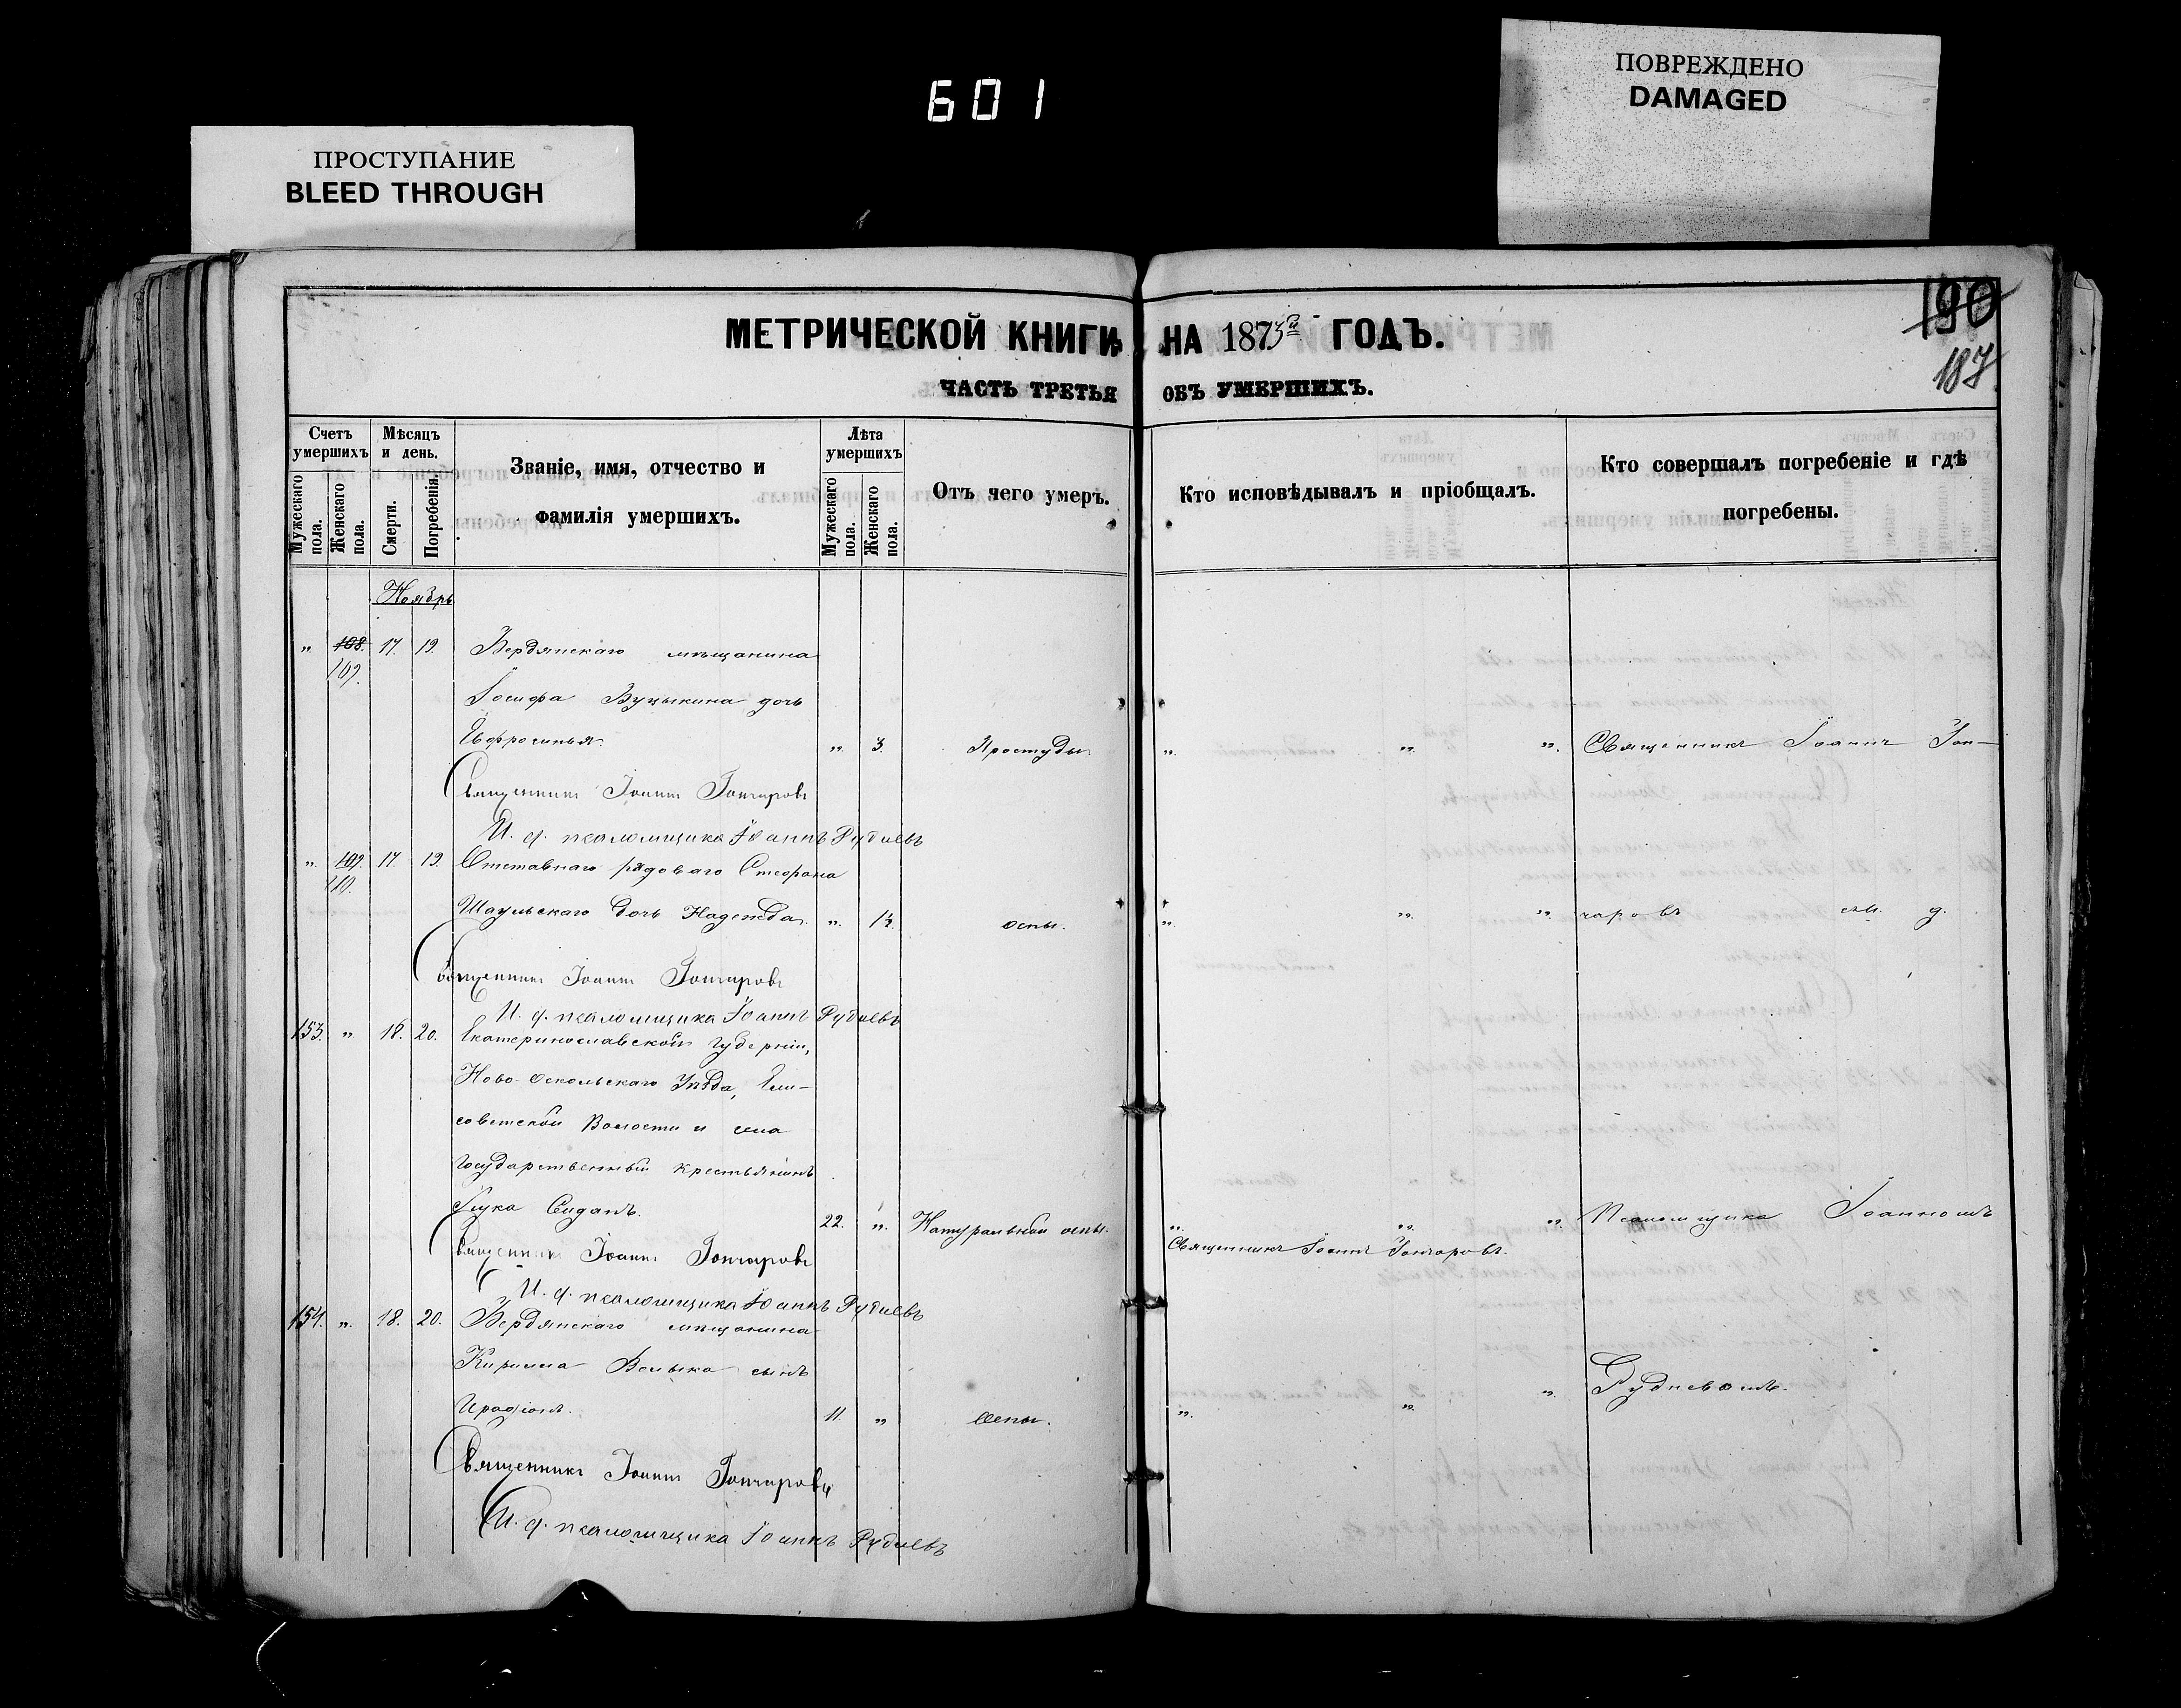 601
ПРОСТУПАНИЕ
BLEED THROUGH
ПОВРЕЖДЕНО
DAMAGED
МЕТРИЧЕСКОЙ КНИГИ НА 1873й ГОДЪ.
190
187
ЧАСТЬ ТРЕТЬЯ ОБЪ УМЕРШИХЪ.
Счетъ умершихъ
Мужескаго пола.
Женскаго пола.
Мѣсяцъ и день.
Смерти.
Погребенія.
Званіе, имя, отчество и фамилія умершихъ.
Лѣта умершихъ
Мужескаго пола.
Женскаго пола.
Отъ чего умеръ.
Кто исповѣдывалъ и пріобщалъ.
Кто совершалъ погребеніе и гдѣ погребены.
Ноябрь
„ 108. 17. 19. Бердянскаго мѣщанина
109.
Іосифа дочь
Евфросинья. „ 3. Простуды. „ „ „ Священникъ Іоаннъ Гон-
Священникъ Іоаннъ Гончаровъ
И. д. псаломщика Іоаннъ Рудневъ
„ 109. 17. 19. Отставнаго рядоваго Стефана
110.
дочь Надежда. „ оспы. „ „ „ чаровъ
Священникъ Іоаннъ Гончаровъ
И. д. псаломщика Іоаннъ Рудневъ
153. „ 18. 20. Екатеринославской губерніи,
Ново-Оскольскаго Уѣзда, Ели-
саветской Волости и села
государственный крестьянинъ
Лука 22. „ Натуральной оспы. „ „ „ Псаломщика Іоанномъ
Священникъ Іоаннъ Гончаровъ Священникъ Іоаннъ Гончаровъ.
И. д. псаломщика Іоаннъ Рудневъ
154. „ 18. 20. Бердянскаго мѣщанина
Кирилла сынъ
Иродіонъ. 11. „ Оспы. „ „ „ Рудневымъ.
Священникъ Іоаннъ Гончаровъ
И. д. псаломщика Іоаннъ Рудневъ